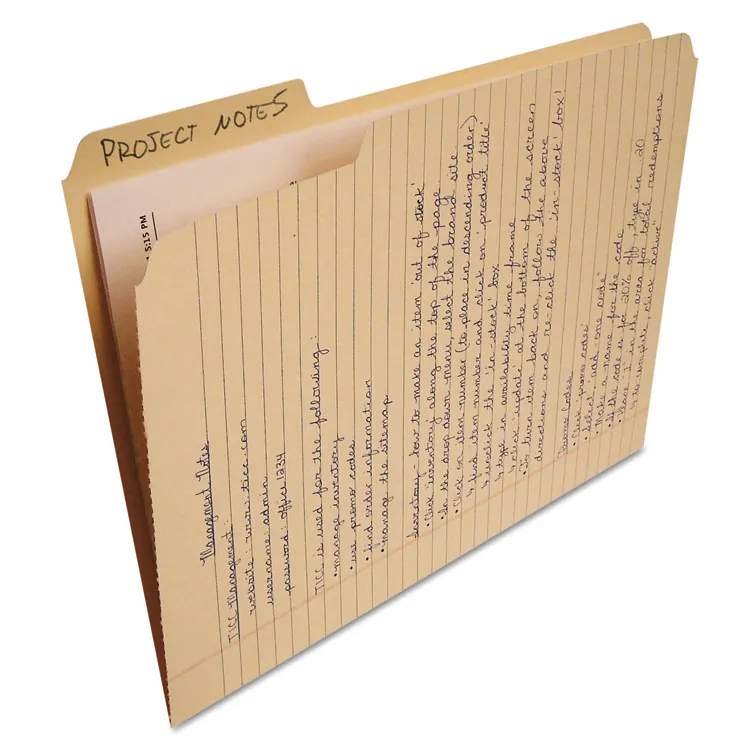 PROJECT NOTES
5:15 PM
Management Notes
TICC Management:
website: www.ticc.com
username: admin
password: office1234
TICC is used for the following:
• manage inventory
• use promo codes
• find order information
• manage the sitemap
Inventory - how to make an item 'out of stock'
• Click 'inventory' along the top of the page
• In the drop down menu, select the brand site
• Click on item number (to place in descending order)
↳ find item number and click on 'product title'
↳ unclick the 'in-stock' box
↳ type in availability time frame
↳ click 'update' at the bottom of the screen
• To turn item back on, follow the above
directions and re-click the 'in-stock' box!
Promo Codes
• Click 'promo codes'
• Select 'add-one code'
• Make a name for the code
• If the code is for 20% off, type in 20
• Place "1" in the area for total redemptions
↳ to complete, click "active"